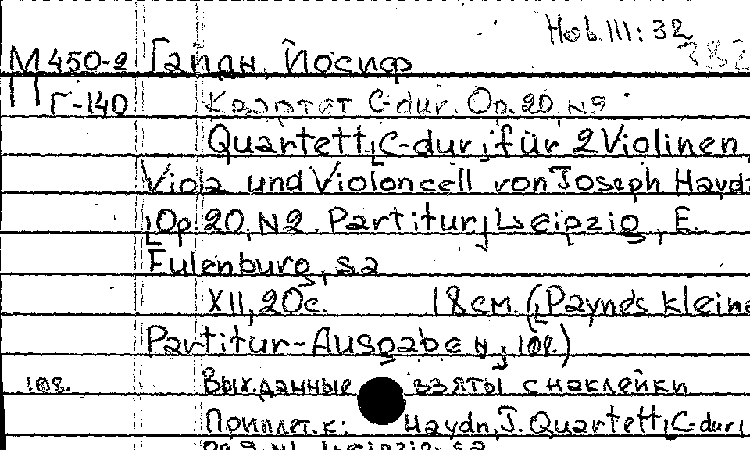 Hob.III:32
М 450-2 Гайдн, Йосиф
П Г-140 Квартет C-dur. Op.20, №2
Quartett, C-dur, für 2 Violinen,
Viola und Violoncell von Joseph Haydn
Op. 20, N2. Partitur, Leipzig, E.
Eulenburg, s.a
XII, 20с. 18см. (Payne's kleine
Partitur-Ausgabe N, 108.)
108. Вых.данные взяты с наклейки
Приплет.к: Haydn, J. Quartett, C-dur,
Leipzig. s.a